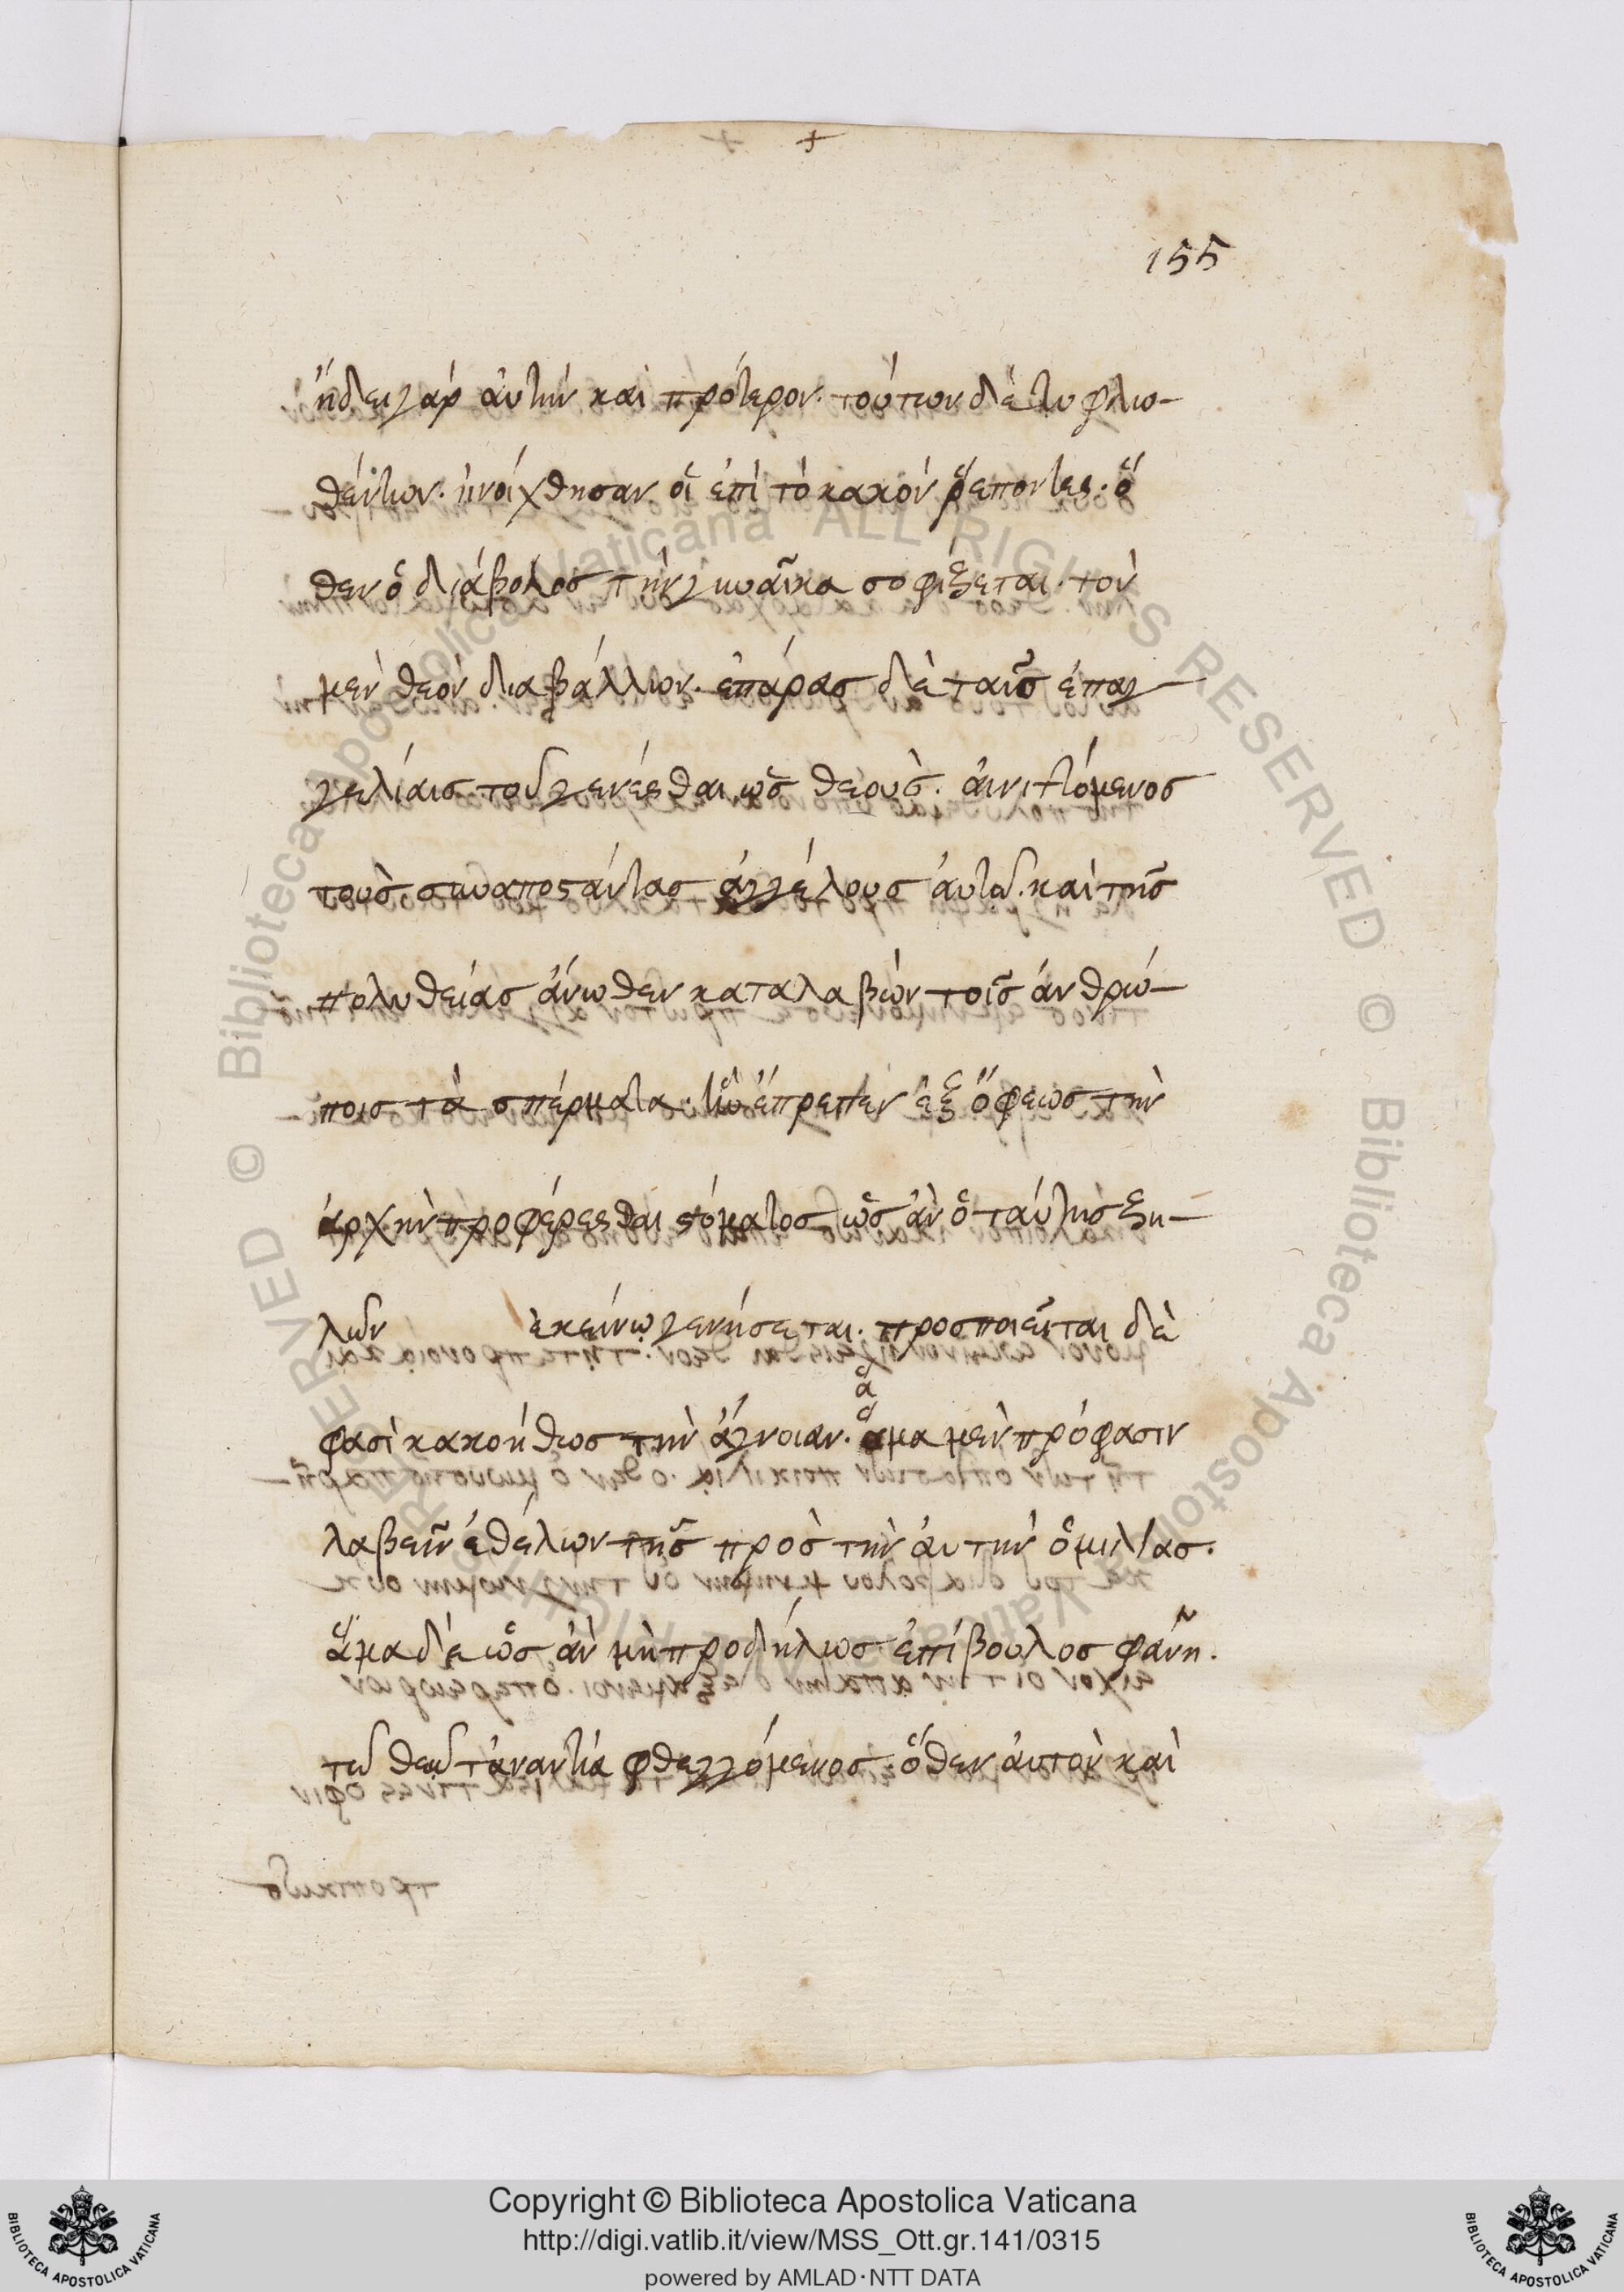 155
ἤδει γὰρ ἀυτὴν καὶ πρότερον· τούτων δὲ τυφλω-
θέντων· ἠνοίχθησαν οἱ ἐπὶ τὸ κακὸν ῥέποντες· ὅ
θεν ὁ διάβολος τὴν γυναῖκα σοφίζεται· τὸν
μὲν θεὸν διαβάλλων· ἐπάρας δὲ ταῖς ἐπαγ
γελίαις τοῦ γενέσθαι ὡς θεούς· ἀινιττόμενος
τοὺς συναποστάντας ἀγγέλους ἀυτῶ· καὶ τῆς
πολυθείας ἄνωθεν καταλαβὼν τοῖς ἀνθρώ-
ποις τὰ σπέρματα· ἣν ἔπρεπεν ἐξ ὄφεως τὴν
ἀρχὴν προφέρεσθαι στόματος, ὡς ἂν ὁ ταύτης ζη-
λῶν ἐκείνω γενήσεται· προσποιεῖται δὲ
φασὶ κακοήθως τὴν ἄγνοιαν· ἅμα μὲν πρόφασιν
λαβεῖν ἐθέλων τῆς πρὸς τὴν ἀυτὴν ὁμιλίας·
ἅμα δὲ ὡς ἂν μὴ προδήλως ἐπίβουλος φανῆ·
τῶ θεῶ τἀναντία φθεγγόμενος· ὅθεν ἀυτὸν καὶ
Copyright © Biblioteca Apostolica Vaticana
http://digi.vatlib.it/view/MSS_Ott.gr.141/0315
powered by AMLAD·NTT DATA
BIBLIOTECA APOSTOLICA VATICANA
BIBLIOTECA APOSTOLICA VATICANA